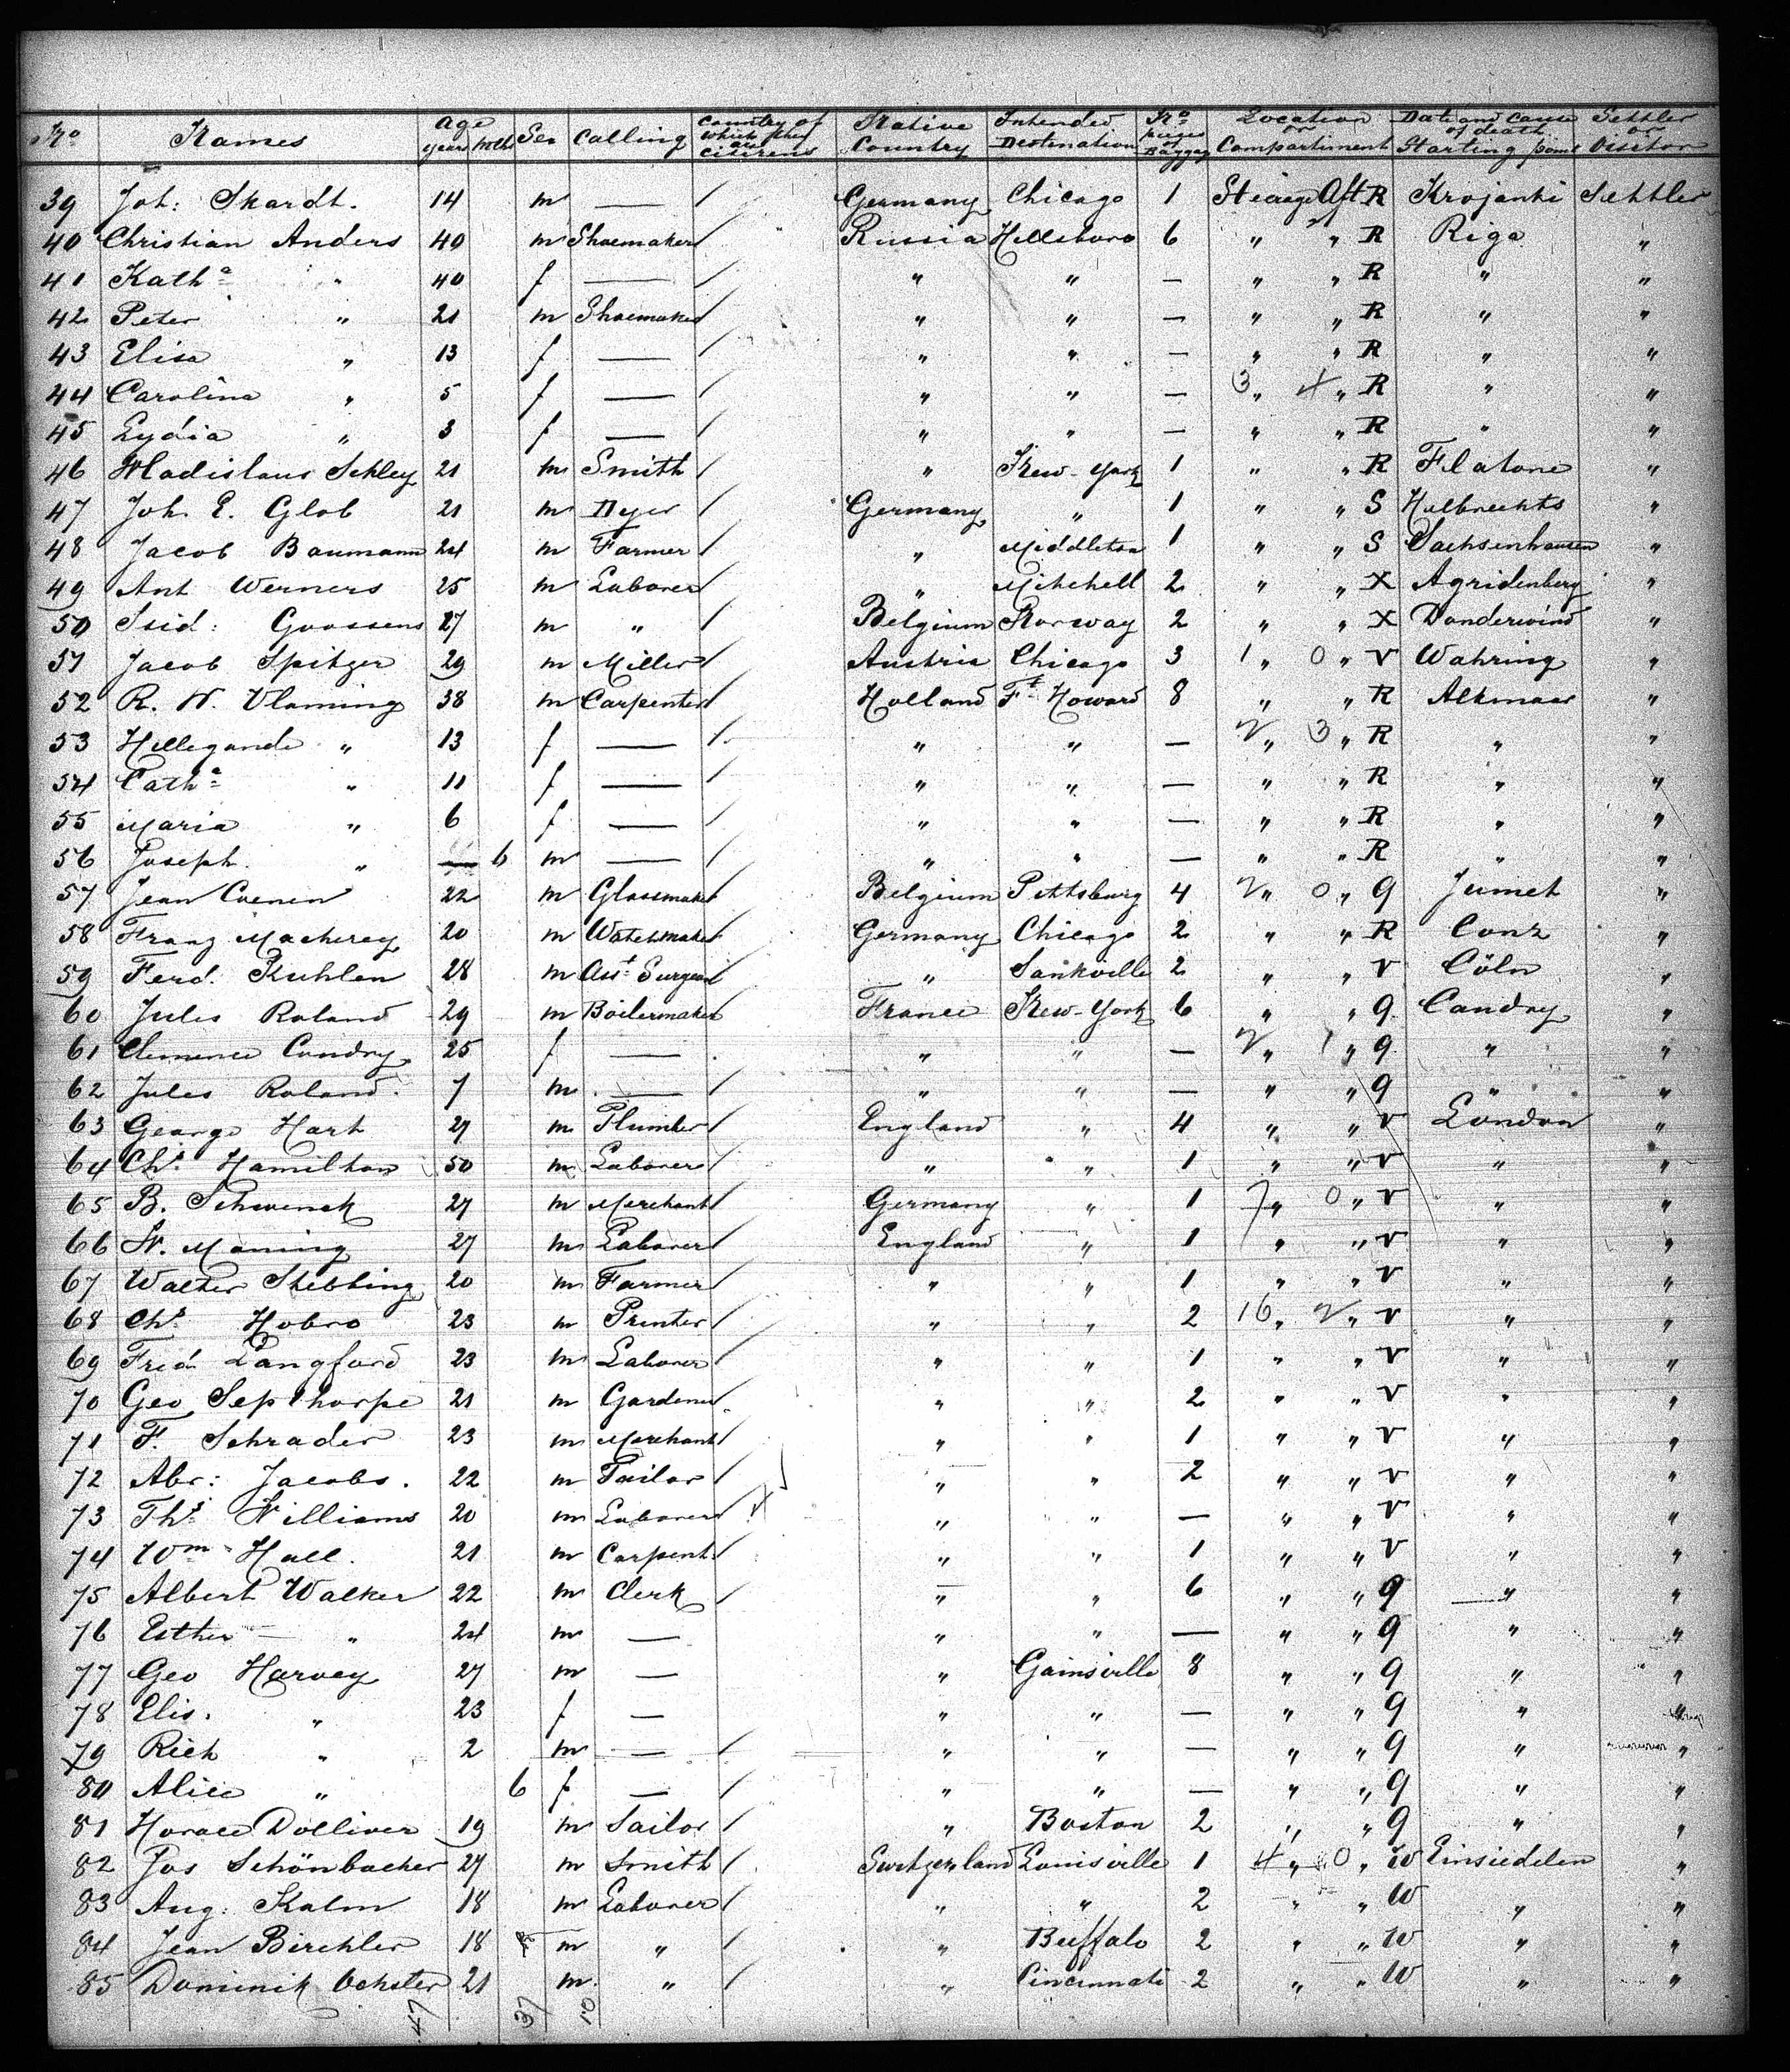 No Names Age years mths Sex Calling Country of which they are citizens Native Country Intended Destination No pieces of Baggage Location or Compartment Date and cause of death Starting point Settler or Visitor
39 Joh: Skardt. 14 m — / Germany Chicago 1 Steerage Aft R Krojanki Settler
40 Christian Anders 40 m Shoemaker / Russia Hillsboro 6 " " R Riga "
41 Katha " 40 f — / " " — " " R " "
42 Peter " 21 m Shoemaker / " " — " " R " "
43 Elisa " 13 f — / " " — " " R " "
44 Carolina " 5 f — / " " — 3 " 4 " R " "
45 Lydia " 3 f — / " " — " " R " "
46 Wladislaus Schley 21 m Smith / " New-York 1 " " R Flatone "
47 Joh. E. Glob 21 m Dyer / Germany " 1 " " S Helbrechts "
48 Jacob Baumann 24 m Farmer / " Middleton 1 " " S Sachsenhausen "
49 Ant Werners 25 m Laborer / " Mitchell 2 " " X Agridenberg "
50 Isid: Goossens 27 m " / Belgium Norway 2 " " X Donderwind "
51 Jacob Spitzer 29 m Miller / Austria Chicago 3 1 " 0 " V Wahring "
52 R. N. Vlaming 38 m Carpenter / Holland Ft Howard 8 " " R Alkmaar "
53 Hillegande " 13 f — / " " — 2 " 3 " R " "
54 Catha " 11 f — / " " — " " R " "
55 Maria " 6 f — / " " — " " R " "
56 Joseph " — 6 m — / " " — " " R " "
57 Jean Coenen 22 m Glassmaker Belgium Pittsburg 4 2 " 0 " 9 Jumet "
58 Franz Macherey 20 m Watchmaker Germany Chicago 2 " " R Conz "
59 Ferd. Kuhlen 28 m Asst Surgeon " Sankville 2 " " V Cöln "
60 Jules Roland 29 m Boilermaker France New-York 6 " " 9 Caudry "
61 Clemence Coudry 25 f — " " — 2 " 1 " 9 " "
62 Jules Roland. 7 m — / " " — " " 9 " "
63 George Hart 27 m Plumber / England " 4 " " V London "
64 Chs Hamilton 50 m Laborer / " " 1 " " V " "
65 B. Schwenck 27 m Merchant / Germany " 1 7 " 0 " V " "
66 W. Maning 27 m Laborer / England " 1 " " V " "
67 Walter Stebbing 20 m Farmer / " " 1 " " V " "
68 Chs Hobro 23 m Printer / " " 2 16 " 2 " V " "
69 Fred Langford 23 m Laborer / " " 1 " " V " "
70 Geo Septhorpe 21 m Gardener " " 2 " " V " "
71 F. Schrader 23 m Merchant / " " 1 " " V " "
72 Abr: Jacobs. 22 m Tailor / " " 2 " " V " "
73 Ths Williams 20 m Laborer / " " — " " V " "
74 Wm Hall. 21 m Carpent. / " " 1 " " V " "
75 Albert Walker 22 m Clerk / " " 6 " " 9 " "
76 Esther " 24 m — " " — " " 9 " "
77 Geo Harvey 27 m — " Gainsville 8 " " 9 " "
78 Elis. " 23 f — " " — " " 9 " "
79 Rich " 2 m — / " " — " " 9 " "
80 Alice " 6 f — / " " — " " 9 " "
81 Horace Dolliver 19 m Sailor / " Boston 2 " " 9 " "
82 Jos Schönbacher 27 m Smith / Switzerland Louisville 1 4 " 0 " W Einsiedelen "
83 Aug. Kalm 18 m Laborer / " " 2 " " W " "
84 Jean Birchler 18 m " / " Buffalo 2 " " W " "
85 Dominik Ochster 21 m " / " Cincinnati 2 " " W " "
47 37 10